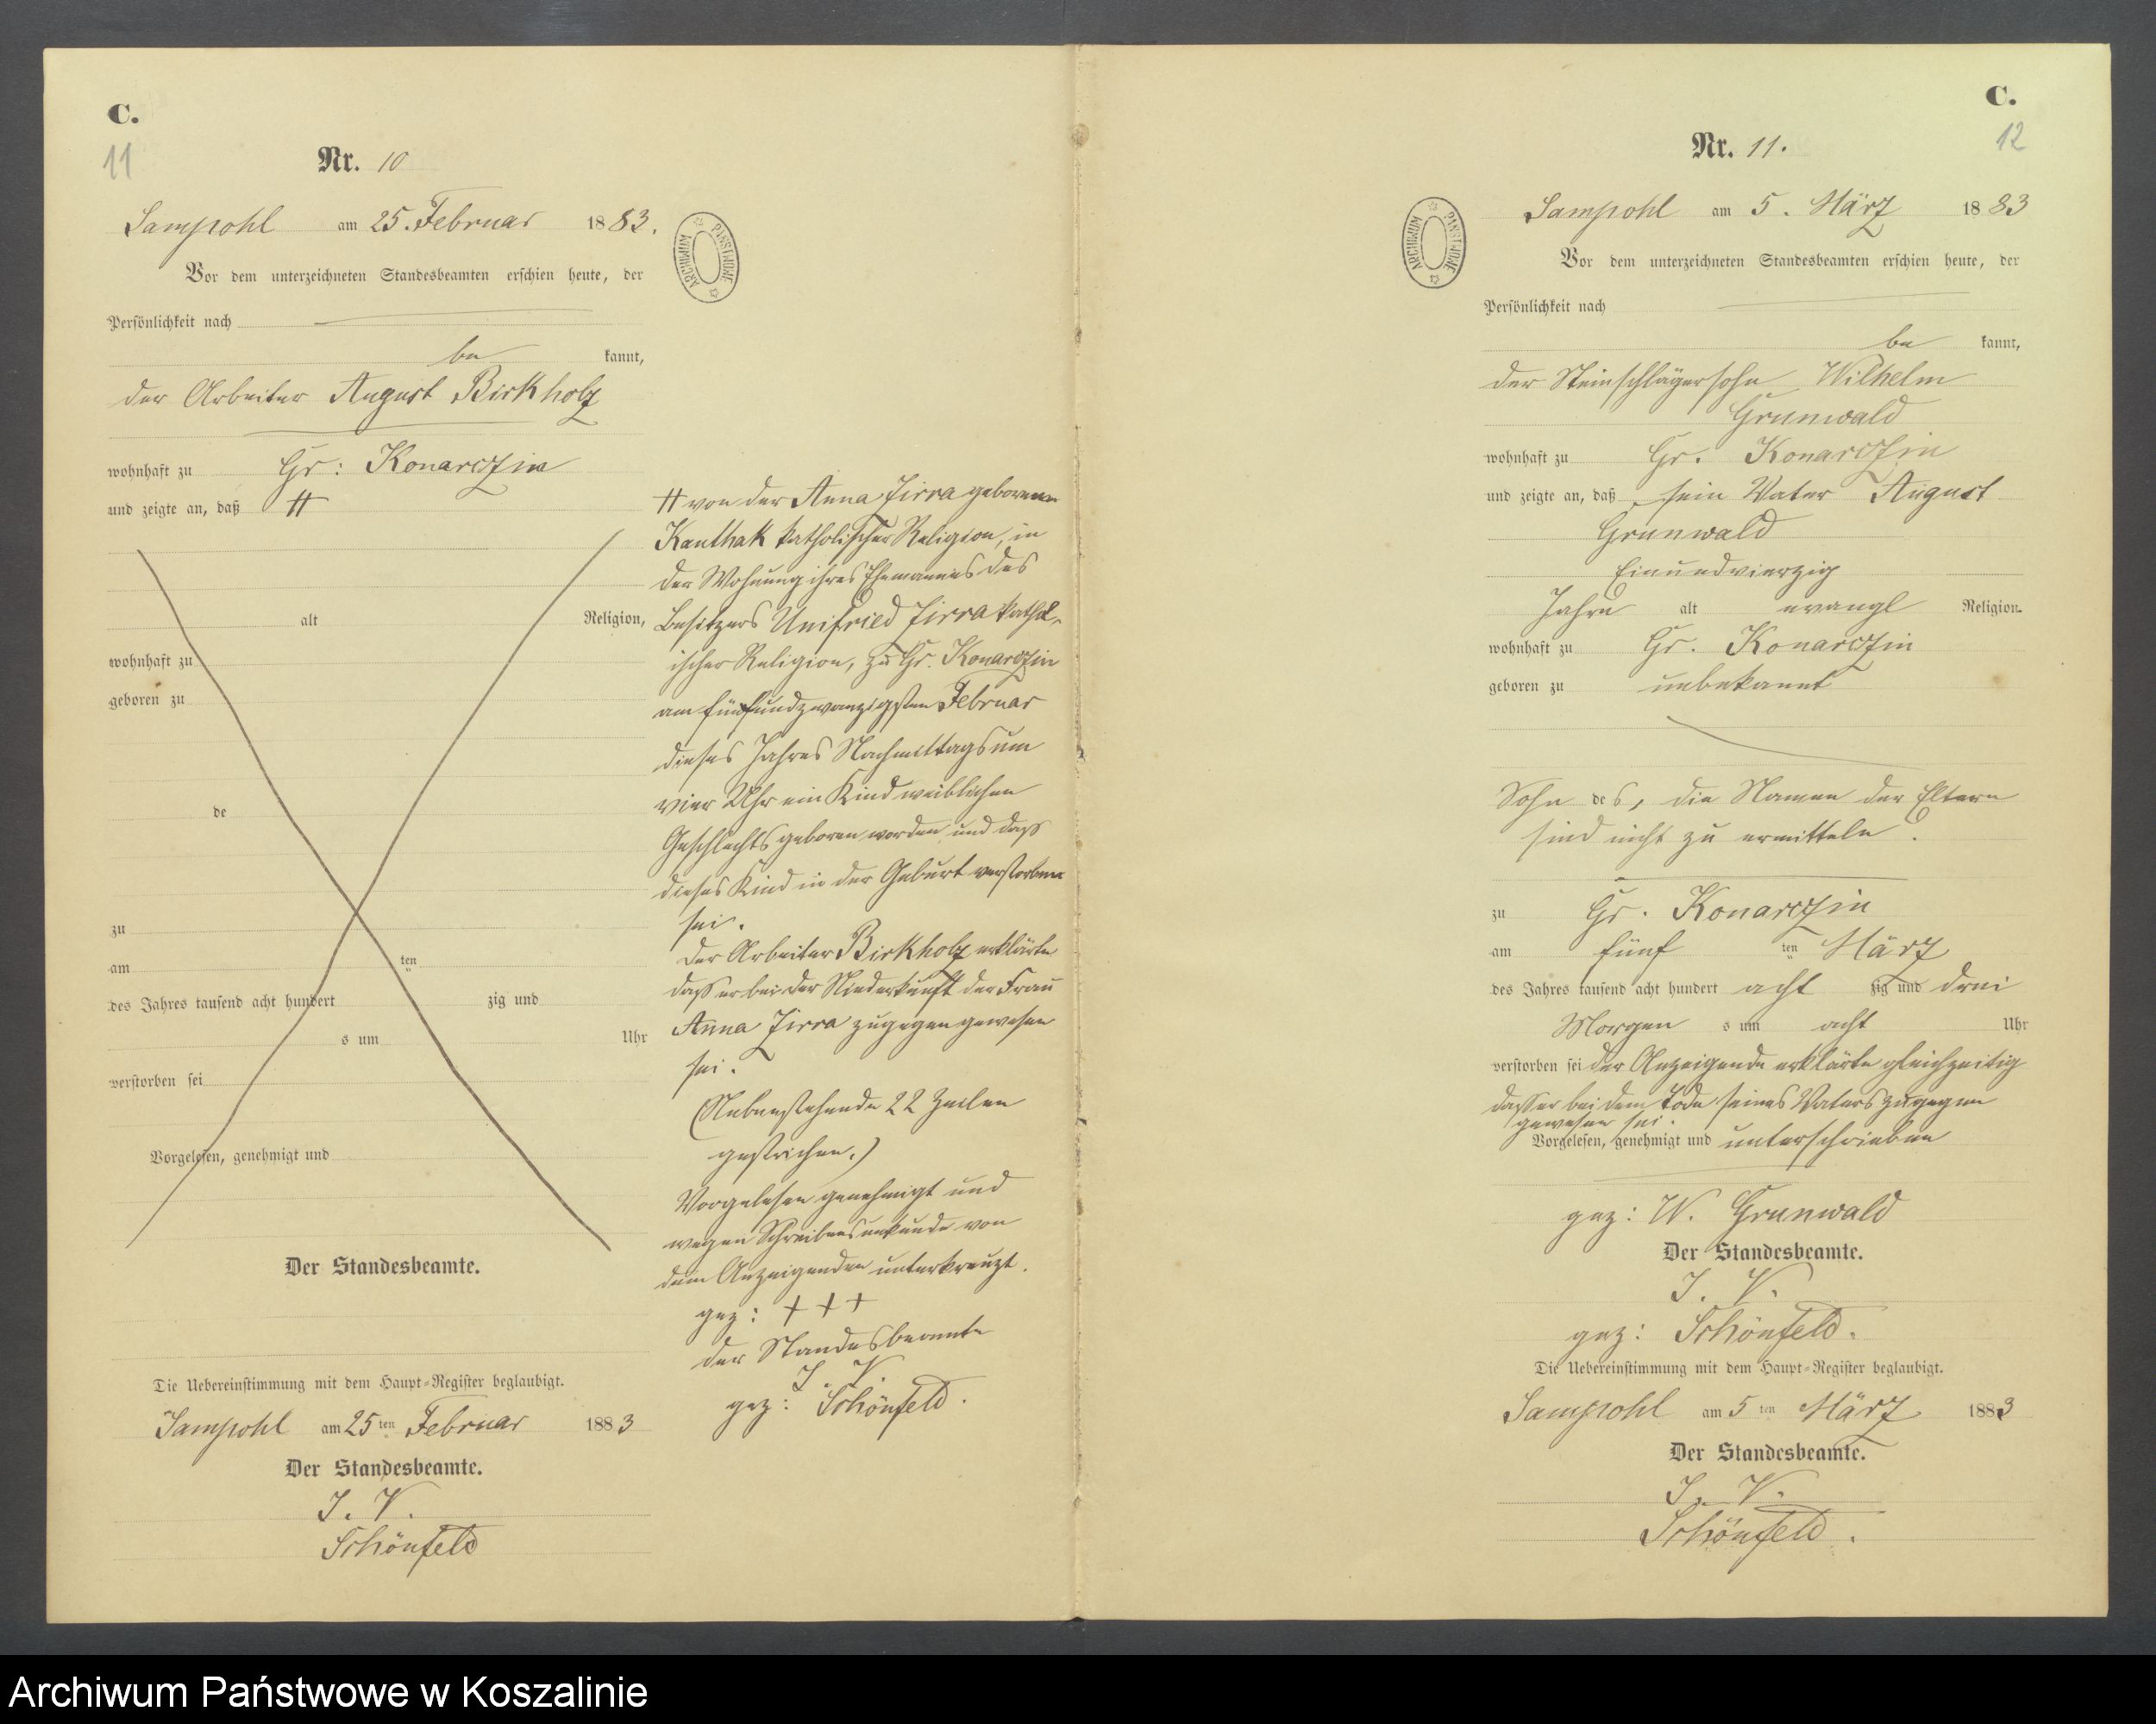 C.
11
Nr. 10
Sampohl am 25. Februar 1883.
Vor dem unterzeichneten Standesbeamten erschien heute, der
Persönlichkeit nach
be kannt,
der Arbeiter August Birkholz
wohnhaft zu Gr: Konarczin
und zeigte an, daß #
alt Religion,
wohnhaft zu
geboren zu
de
zu
am ten
des Jahres tausend acht hundert zig und
s um Uhr
verstorben sei
Vorgelesen, genehmigt und
Der Standesbeamte.
Die Uebereinstimmung mit dem Haupt-Register beglaubigt.
Sampohl am 25 ten Februar 1883
Der Standesbeamte.
J. V.
Schönfeld
ARCHIWUM PAŃSTWOWE
# von der Anna Jirra geborenen
Kanthak katholischer Religion, in
der Wohnung ihres Ehemannes des
Besitzers Unifried Jirra kathol-
ischer Religion, zu Gr. Konarczin
am fünfundzwanzigsten Februar
dieses Jahres Nachmittags um
vier Uhr ein Kind weiblichen
Geschlechts geboren worden und dass
dieses Kind in der Geburt verstorben
sei.
Der Arbeiter Birkholz erklärte
dass er bei der Niederkunft der Frau
Anna Jirra zugegen gewesen
sei.
(Nebenstehende 22 Zeilen
gestrichen.)
Vorgelesen genehmigt und
wegen Schreibensunkunde von
dem Anzeigenden unterkreuzt.
gez: + + +
der Standesbeamte
J. V.
gez: Schönfeld.
C.
12
Nr. 11.
ARCHIWUM PAŃSTWOWE
Sampohl am 5. März 1883
Vor dem unterzeichneten Standesbeamten erschien heute, der
Persönlichkeit nach
be kannt,
der Steinschlägersohn Wilhelm
Grunwald
wohnhaft zu Gr. Konarczin
und zeigte an, daß sein Vater August
Grunwald
Einundvierzig
Jahre alt evangl Religion.
wohnhaft zu Gr. Konarczin
geboren zu unbekannt
Sohn des, die Namen der Eltern
sind nicht zu ermitteln.
zu Gr. Konarczin
am fünf ten März
des Jahres tausend acht hundert acht zig und drei
Morgen s um acht Uhr
verstorben sei der Anzeigende erklärte gleichzeitig
dass er bei dem Tode seines Vaters zugegen
gewesen sei.
Vorgelesen, genehmigt und unterschrieben
gez: W. Grunwald
Der Standesbeamte.
J. V.
gez: Schönfeld.
Die Uebereinstimmung mit dem Haupt-Register beglaubigt.
Sampohl am 5 ten März 1883
Der Standesbeamte.
J. V.
Schönfeld.
Archiwum Państwowe w Koszalinie